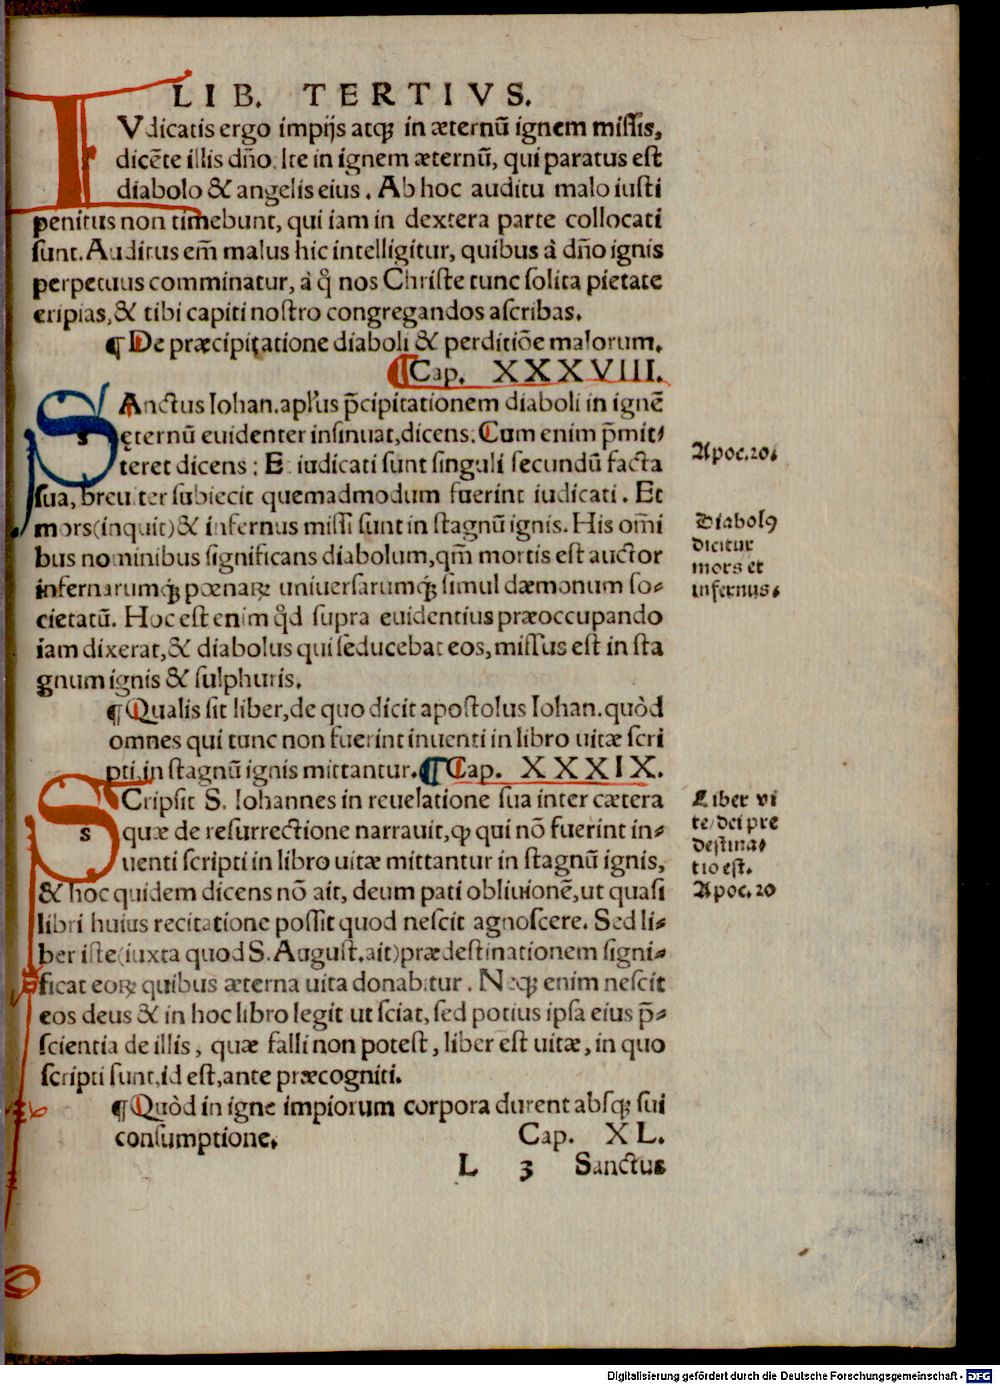 LIB. TERTIVS.
IVdicatis ergo impijs atqꝫ in æternũ ignem miſſis,
dicẽte illis dño. Ite in ignem æternũ, qui paratus eſt
diabolo & angelis eius. Ab hoc auditu malo iuſti
penitus non timebunt, qui iam in dextera parte collocati
ſunt. Auditus em̃ malus hic intelligitur, quibus à dño ignis
perpetuus comminatur, à q̃ nos Chriſte tunc ſolita pietate
eripias, & tibi capiti noſtro congregandos aſcribas.
¶ De præcipitatione diaboli & perditiõe malorum.
¶ Cap. XXXVIII.
SAnctus Iohan. apl'us p̃cipitationem diaboli in ignẽ
ęternũ euidenter inſinuat, dicens: Cum enim p̃mit⸗
teret dicens: Et iudicati ſunt ſinguli ſecundũ facta
ſua, breuiter ſubiecit quemadmodum fuerint iudicati. Et
mors (inquit) & infernus miſſi ſunt in ſtagnũ ignis. His om̃i
bus nominibus ſignificans diabolum, qm̃ mortis eſt auctor
infernarumqꝫ pœnaꝝ uniuerſarumqꝫ ſimul dæmonum ſo⸗
cietatũ. Hoc eſt enim qd̃ ſupra euidentius præoccupando
iam dixerat, & diabolus qui ſeducebat eos, miſſus eſt in ſta
gnum ignis & ſulphuris.
¶ Qualis ſit liber, de quo dicit apoſtolus Iohan. quòd
omnes qui tunc non fuerint inuenti in libro uitæ ſcri
pti, in ſtagnũ ignis mittantur. ¶ Cap. XXXIX.
SCripſit S. Iohannes in reuelatione ſua inter cætera
quæ de reſurrectione narrauit, ꝙ qui nõ fuerint in⸗
uenti ſcripti in libro uitæ mittantur in ſtagnũ ignis,
& hoc quidem dicens nõ ait, deum pati obliuionẽ, ut quaſi
libri huius recitatione poſſit quod neſcit agnoſcere. Sed li⸗
ber iſte (iuxta quod S. Auguſt. ait) prædeſtinationem ſigni⸗
ficat eoꝝ quibus æterna uita donabitur. Neqꝫ enim neſcit
eos deus & in hoc libro legit ut ſciat, ſed potius ipſa eius p̃⸗
ſcientia de illis, quæ falli non poteſt, liber eſt uitæ, in quo
ſcripti ſunt, id eſt, ante præcogniti.
¶ Quòd in igne impiorum corpora durent abſqꝫ ſui
conſumptione. Cap. XL.
L 3 Sanctus
Apoc. 20.
Diabolꝰ
dicitur
mors et
infernus.
Liber vi
te/dei pre
deſtina⸗
tio eſt.
Apoc. 20
Digitalisierung gefördert durch die Deutsche Forschungsgemeinschaft - DFG